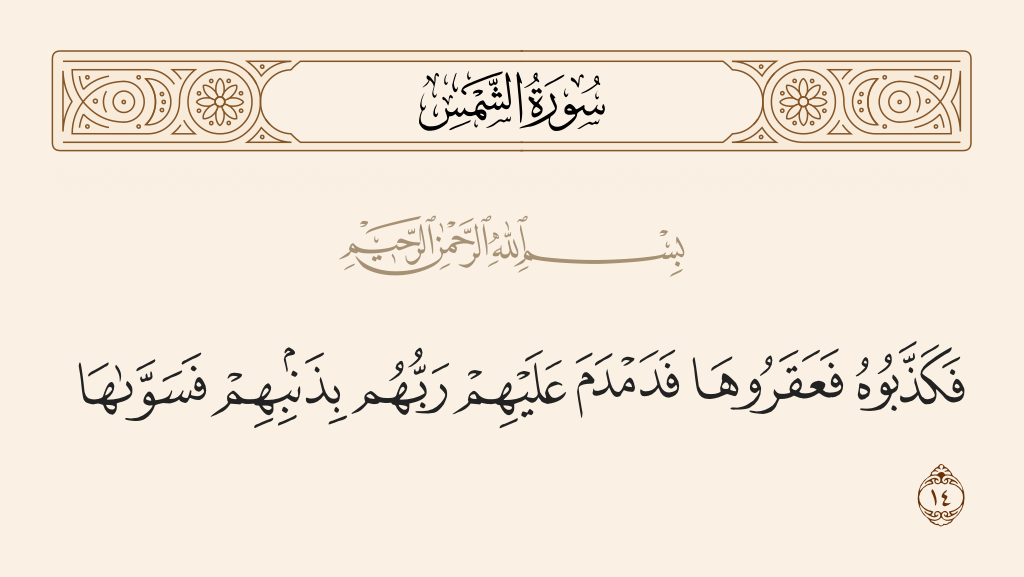 سُورَةُ الشَّمْسِ
بِسْمِ ٱللَّهِ ٱلرَّحْمَٰنِ ٱلرَّحِيمِ
فَكَذَّبُوهُ فَعَقَرُوهَا فَدَمْدَمَ عَلَيْهِمْ رَبُّهُم بِذَنۢبِهِمْ فَسَوَّىٰهَا
١٤